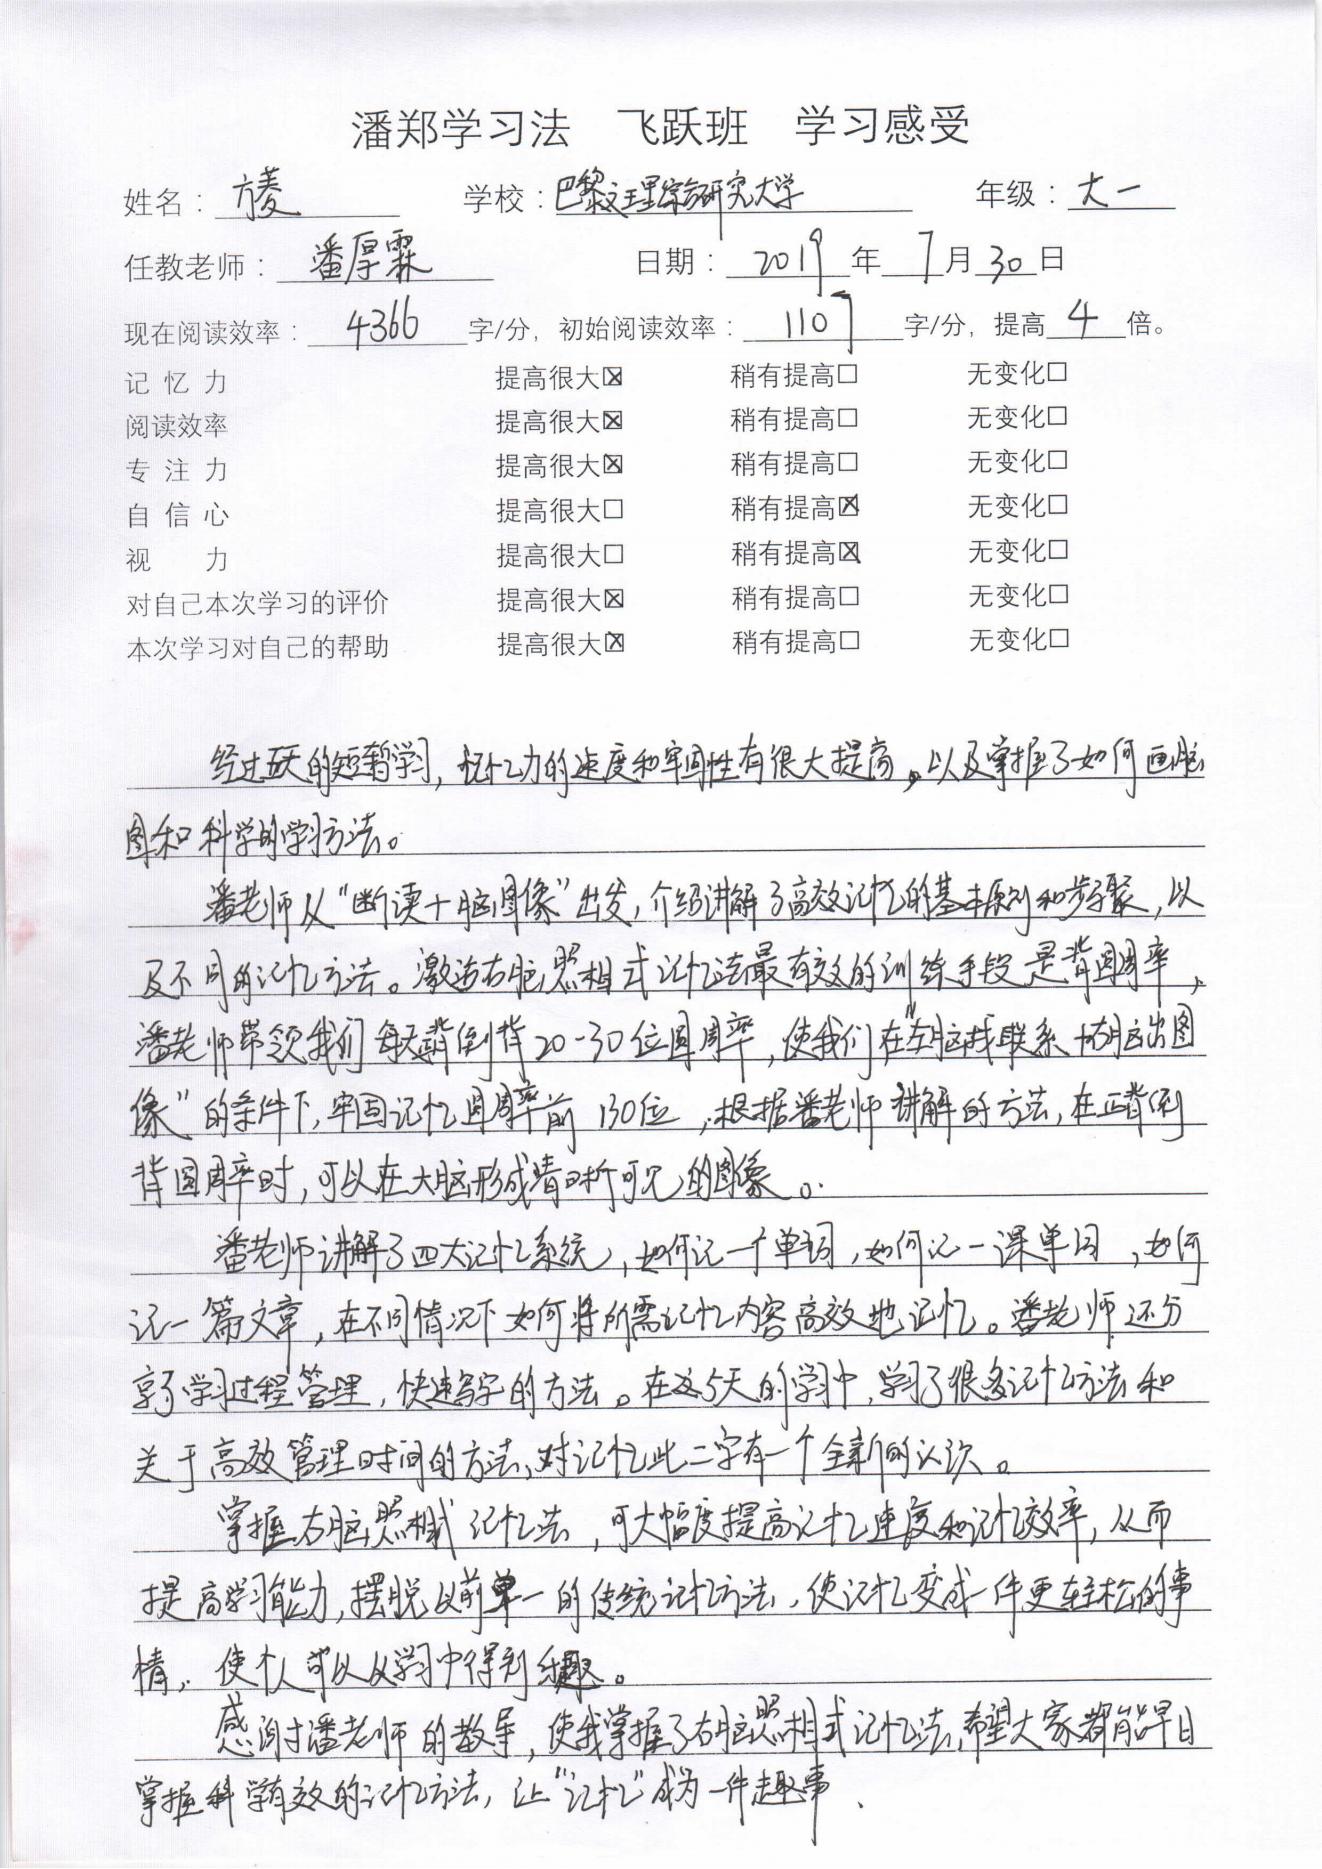 潘郑学习法 飞跃班 学习感受
姓名：方菱 学校：巴黎文理综合研究大学 年级：大一
任教老师：潘厚霖 日期：2019年7月30日
现在阅读效率：4366字/分，初始阅读效率：1107字/分，提高4倍。
记忆力 提高很大☒ 稍有提高☐ 无变化☐
阅读效率 提高很大☒ 稍有提高☐ 无变化☐
专注力 提高很大☒ 稍有提高☐ 无变化☐
自信心 提高很大☐ 稍有提高☒ 无变化☐
视力 提高很大☐ 稍有提高☒ 无变化☐
对自己本次学习的评价 提高很大☒ 稍有提高☐ 无变化☐
本次学习对自己的帮助 提高很大☒ 稍有提高☐ 无变化☐
经过五天的短暂学习，记忆力的速度和牢固性有很大提高，以及掌握了如何画脑
图和科学的学习方法。
潘老师从“断读+脑图像”出发，介绍讲解了高效记忆的基本原则和步骤，以
及不同的记忆方法。激活右脑照相式记忆法最有效的训练手段是背圆周率，
潘老师带领我们每天背倒背20-30位圆周率，使我们在“左脑找联系+右脑出图
像”的条件下，牢固记忆圆周率前130位，根据潘老师讲解的方法，在正背倒
背圆周率时，可以在大脑形成清晰可见的图像。
潘老师讲解了四大记忆系统，如何记一个单词，如何记一课单词，如何
记一篇文章，在不同情况下如何将所需记忆内容高效地记忆。潘老师还分
享了学习过程管理，快速写字的方法。在这5天的学习中，学习了很多记忆方法和
关于高效管理时间的方法，对记忆此二字有一个全新的认识。
掌握右脑照相式记忆法，可大幅度提高记忆速度和记忆效率，从而
提高学习能力，摆脱以前单一的传统记忆方法，使记忆变成一件更轻松的事
情，使个人可以从学习中得到乐趣。
感谢潘老师的教导，使我掌握了右脑照相式记忆法，希望大家都能早日
掌握科学有效的记忆方法，让“记忆”成为一件趣事、